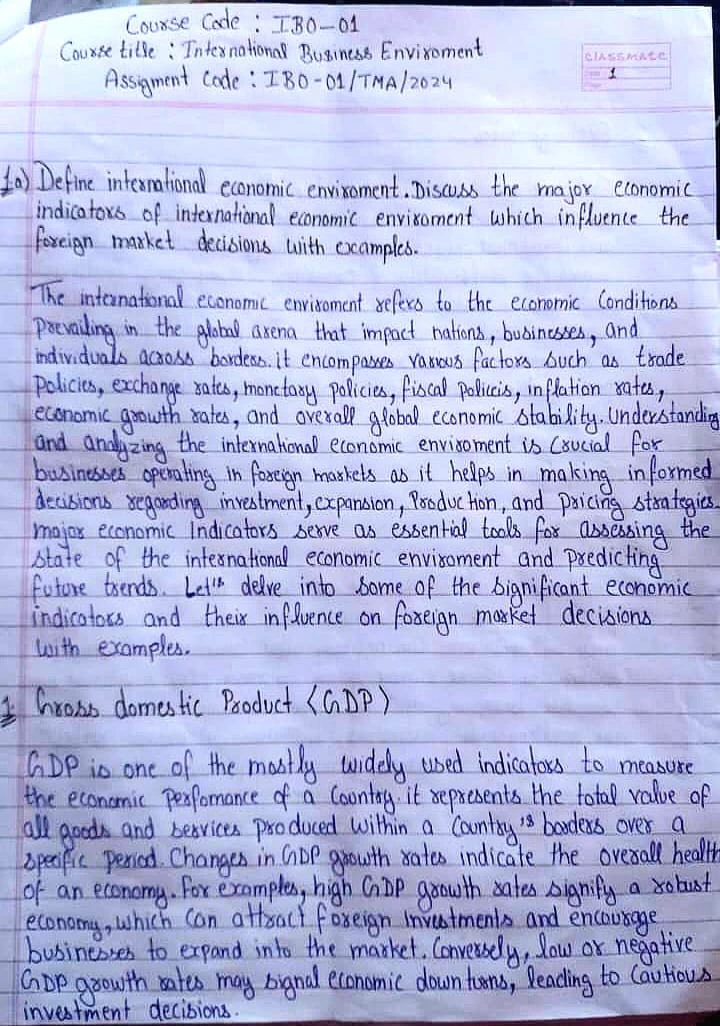 Course Code : IBO-01
Course title : International Business Enviroment
Assigment Code : IBO-01/TMA/2024
classmate
1
1a) Define international economic enviroment. Discuss the major economic
indicators of international economic enviroment which influence the
foreign market decisions with examples.
The international economic enviroment refers to the economic Conditions
Prevailing in the global arena that impact nations, businesses, and
individuals across borders. it encompasses various factors such as trade
Policies, exchange rates, monetary policies, fiscal policeis, inflation rates,
economic growth rates, and overall global economic stability. Understanding
and analyzing the international economic enviroment is Crucial for
businesses operating in foreign markets as it helps in making informed
decisions regarding investment, expansion, Production, and Pricing strategies.
major economic Indicators serve as essential tools for assessing the
state of the international economic enviroment and Predicting
future trends. Let's delve into some of the significant economic
indicators and their influence on foreign market decisions
with examples.
1. Gross domestic Product (GDP)
GDP is one of the mostly widely used indicators to measure
the economic Perfomance of a Country. it represents the total value of
all goods and services Produced within a Country's borders over a
specific Period. Changes in GDP growth rates indicate the overall health
of an economy. For examples, high GDP growth rates signify a robust
economy, which Can attract foreign Investments and encourage
businesses to expand into the market. Conversely, low or negative
GDP growth rates may signal economic down turns, leading to Cautious
investment decisions.